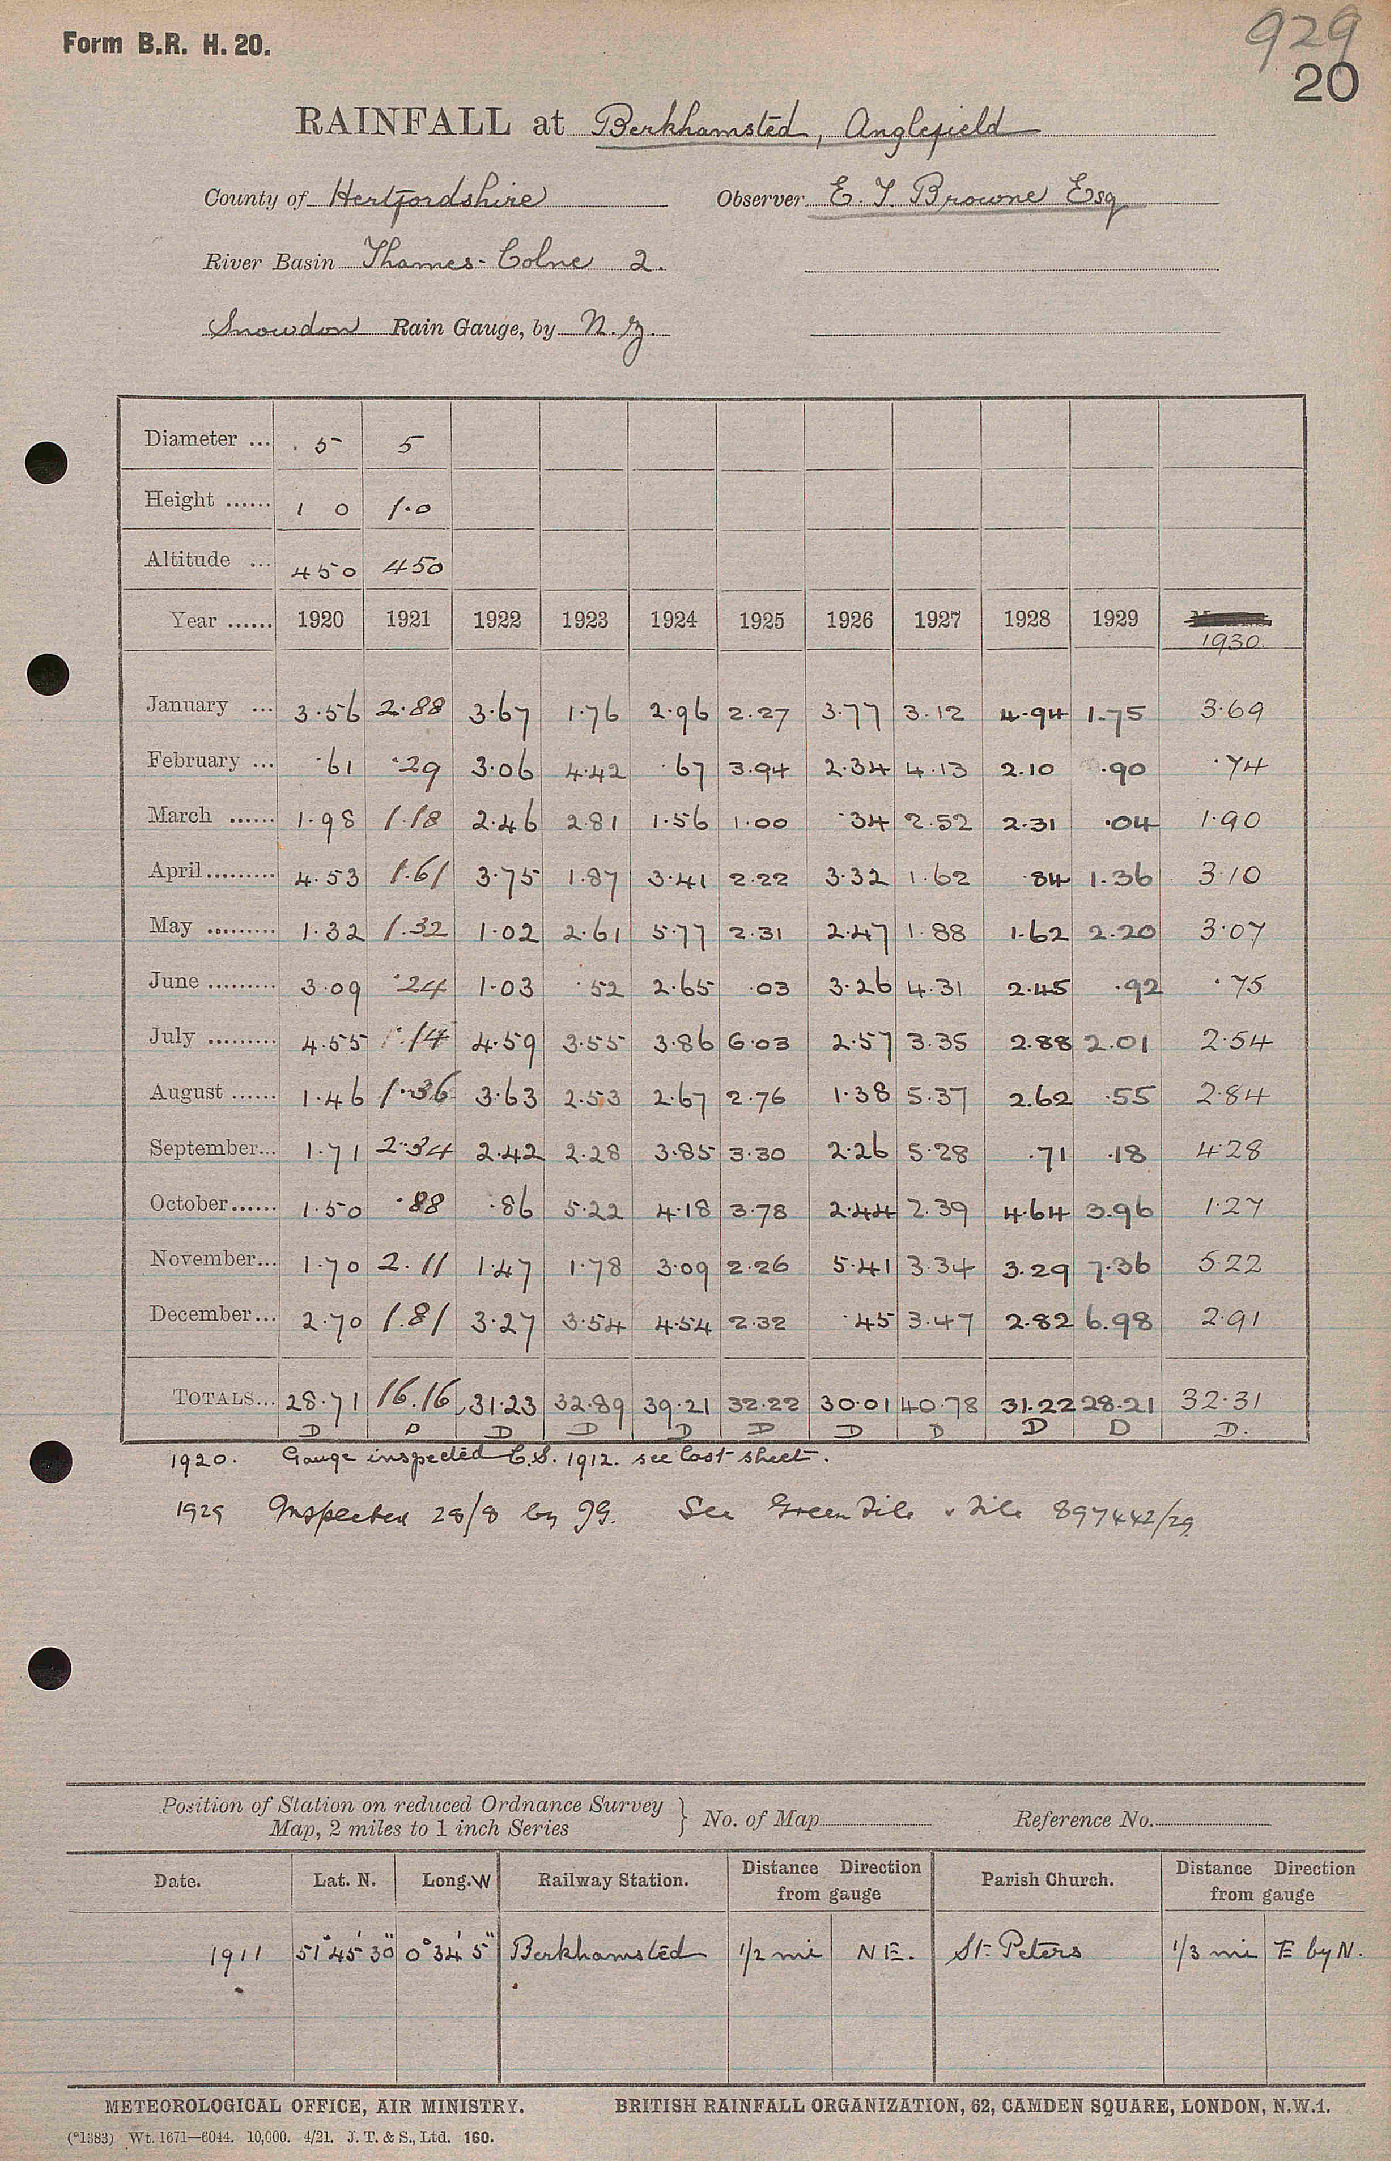 Form B.R. H. 20.
929
20
RAINFALL at Berkhamsted, Anglefield
County of Hertfordshire Observer E. T. Browne Esq
River Basin Thames-Colne 2.
Snowdon Rain Gauge, by N.Z.
Diameter ... 5 5
Height ...... 1 0 1.0
Altitude ... 450 450
Year ...... 1920 1921 1922 1923 1924 1925 1926 1927 1928 1929 1930
January ... 3.56 2.88 3.67 1.76 2.96 2.27 3.77 3.12 4.94 1.75 3.69
February ... .61 .29 3.06 4.42 .67 3.94 2.34 4.13 2.10 .90 .74
March ...... 1.98 1.18 2.46 2.81 1.56 1.00 .34 2.52 2.31 .04 1.90
April ......... 4.53 1.61 3.75 1.87 3.41 2.22 3.32 1.62 .84 1.36 3.10
May ......... 1.32 1.32 1.02 2.61 5.77 2.31 2.47 1.88 1.62 2.20 3.07
June ......... 3.09 .24 1.03 .52 2.65 .03 3.26 4.31 2.45 .92 .75
July ......... 4.55 .14 4.59 3.55 3.86 6.03 2.57 3.35 2.88 2.01 2.54
August ...... 1.46 1.36 3.63 2.53 2.67 2.76 1.38 5.37 2.62 .55 2.84
September... 1.71 2.34 2.42 2.28 3.85 3.30 2.26 5.28 .71 .18 4.28
October...... 1.50 .88 .86 5.22 4.18 3.78 2.44 2.39 4.64 3.96 1.27
November... 1.70 2.11 1.47 1.78 3.09 2.26 5.41 3.34 3.29 7.36 5.22
December... 2.70 1.81 3.27 3.54 4.54 2.32 .45 3.47 2.82 6.98 2.91
TOTALS... 28.71 16.16 31.23 32.89 39.21 32.22 30.01 40.78 31.22 28.21 32.31
D D D D D D D D D D D.
1920. Gauge inspected C.S. 1912. see last sheet.
1929 Inspected 28/8 by JG. See Green File & File 897442/29
Position of Station on reduced Ordnance Survey
Map, 2 miles to 1 inch Series } No. of Map Reference No.
Date. Lat. N. Long. W Railway Station. Distance Direction from gauge Parish Church. Distance Direction from gauge
1911 51° 45' 30" 0° 34' 5" Berkhamsted 1/2 mi N E. St. Peters 1/3 mi E by N.
METEOROLOGICAL OFFICE, AIR MINISTRY. BRITISH RAINFALL ORGANIZATION, 62, CAMDEN SQUARE, LONDON, N.W.1.
(*1383) Wt. 1671—6044. 10,000. 4/21. J. T. & S., Ltd. 160.